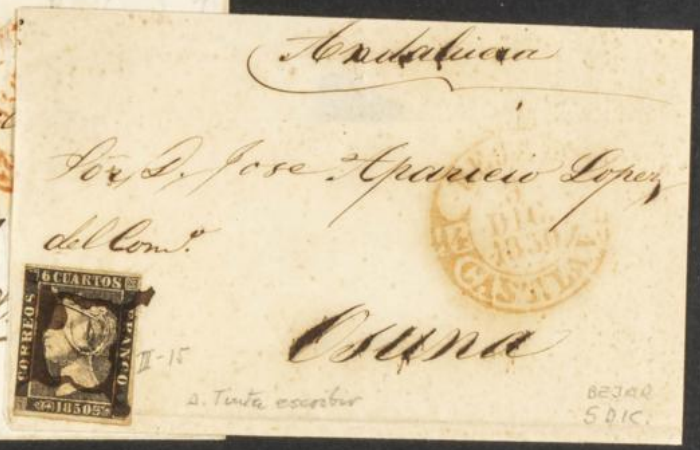 Andalucia
Sõr. D. Jose Aparicio Lopez
del Com.º
Osuna
5
DIC.
1850
CAST. LA V.
6 CUARTOS
CORREOS
FRANCO
1850
III-15
a. Tinta escribir
BEJAR
5 DIC.